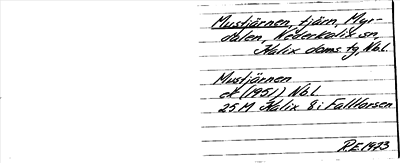 Mustjärnen, tjärn, Myr-
dalen, Nederkalix sn,
Kalix doms tg, Nbl.
Mustjärnen
ek (1951) Nbl.
25M Kalix 8i Falltorsen
R.E. 1973